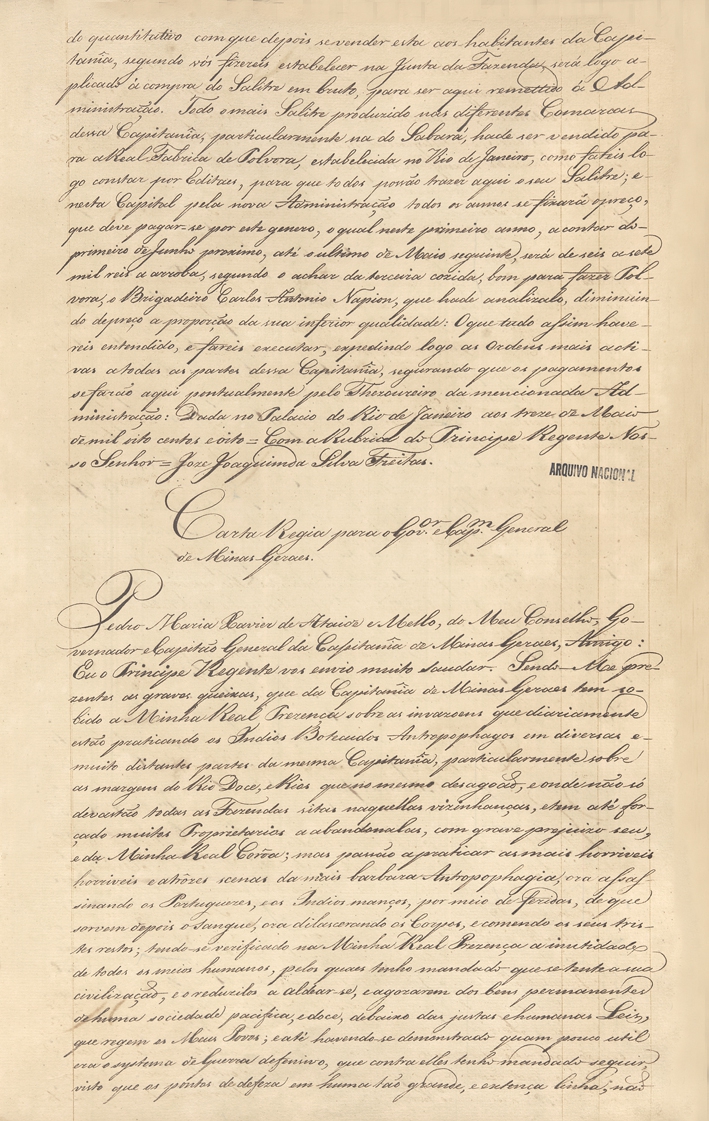 do quantitativo com que depois se vender esta aos habitantes da Capi-
tania, segundo vós fizereis estabelecer na Junta da Fazenda, será logo a-
plicado à compra do Salitre em bruto, para ser aqui remettido à Ad-
ministração. Todo o mais Salitre produzido nas diferentes Comarcas
dessa Capitania, particularmente na do Sabará, hade ser vendido pa-
ra a Real Fabrica de Polvora, estabelecida no Rio de Janeiro, como fareis lo-
go constar por Editaes, para que todos possão trazer aqui o seu Salitre; e
nesta Capital pela nova Administração todos os annos se fixará o preço,
que deve pagar-se por este genero, o qual neste primeiro anno, a contar do
primeiro de Junho proximo, até o ultimo de Maio seguinte, será de seis a sete
mil reis a arroba, segundo o achar da terceira cozida, bom para fazer Pol-
vora, o Brigadeiro Carlos Antonio Napion, que hade analizalo, diminuin-
do de preço a proporção da sua inferior qualidade: O que tudo assim have-
reis entendido, e fareis executar, expedindo logo as Ordens mais acti-
vas a todas as partes dessa Capitania, segurando que os pagamentos
se farão aqui pontualmente pelo Thezoureiro da mencionada Ad-
ministração: Dada no Palacio do Rio de Janeiro aos treze de Maio
de mil oito centos e oito = Com a Rubrica do Principe Regente Nos-
so Senhor = Joze Joaquim da Silva Freitas.
ARQUIVO NACIONAL
Carta Regia para o Gov.or e Cap.m General
de Minas Geraes.
Pedro Maria Xavier de Ataide e Mello, do Meu Conselho, Go-
vernador e Capitão General da Capitania de Minas Geraes, Amigo:
Eu o Principe Regente vos envio muito saudar. Sendo-Me pre-
zentes as graves queixas, que da Capitania de Minas Geraes tem so-
bido a Minha Real Prezença, sobre as invazoens que diariamente
estão praticando os Indios Botecudos Antropophagos em diversas e
muito distantes partes da mesma Capitania, particularmente sobre
as margens do Rio Doce, e Rios que no mesmo desagoão, e onde não só
devastão todas as Fazendas sitas naquellas vizinhanças, e tem até for-
çado muitos Proprietarios a abandonalas, com grave prejuizo seu,
e da Minha Real Corôa; mas passão a praticar as mais horriveis
horriveis e atrôzes scenas da mais barbara Antropophagia, ora assas-
sinando os Portuguezes, e os Indios manços, por meio de feridas, de que
sorvem depois o sangue, ora dilascerando os Corpos, e comendo os seus tris-
tes restos; tendo-se verificado na Minha Real Prezença a inutilidade
de todos os meios humanos, pelos quaes tenho mandado que se tente a sua
civilização, e o reduzilos a aldear-se, e a gozarem dos bens permanentes
de huma sociedade pacifica, e doce, debaixo das justas e humanas Leis,
que regem os Meus Povos; e até havendo-se demonstrado quam pouco util
era o systema de Guerra defensivo, que contra elles tenho mandado seguir,
visto que os pontos de defeza em huma tão grande, e extença linha, não